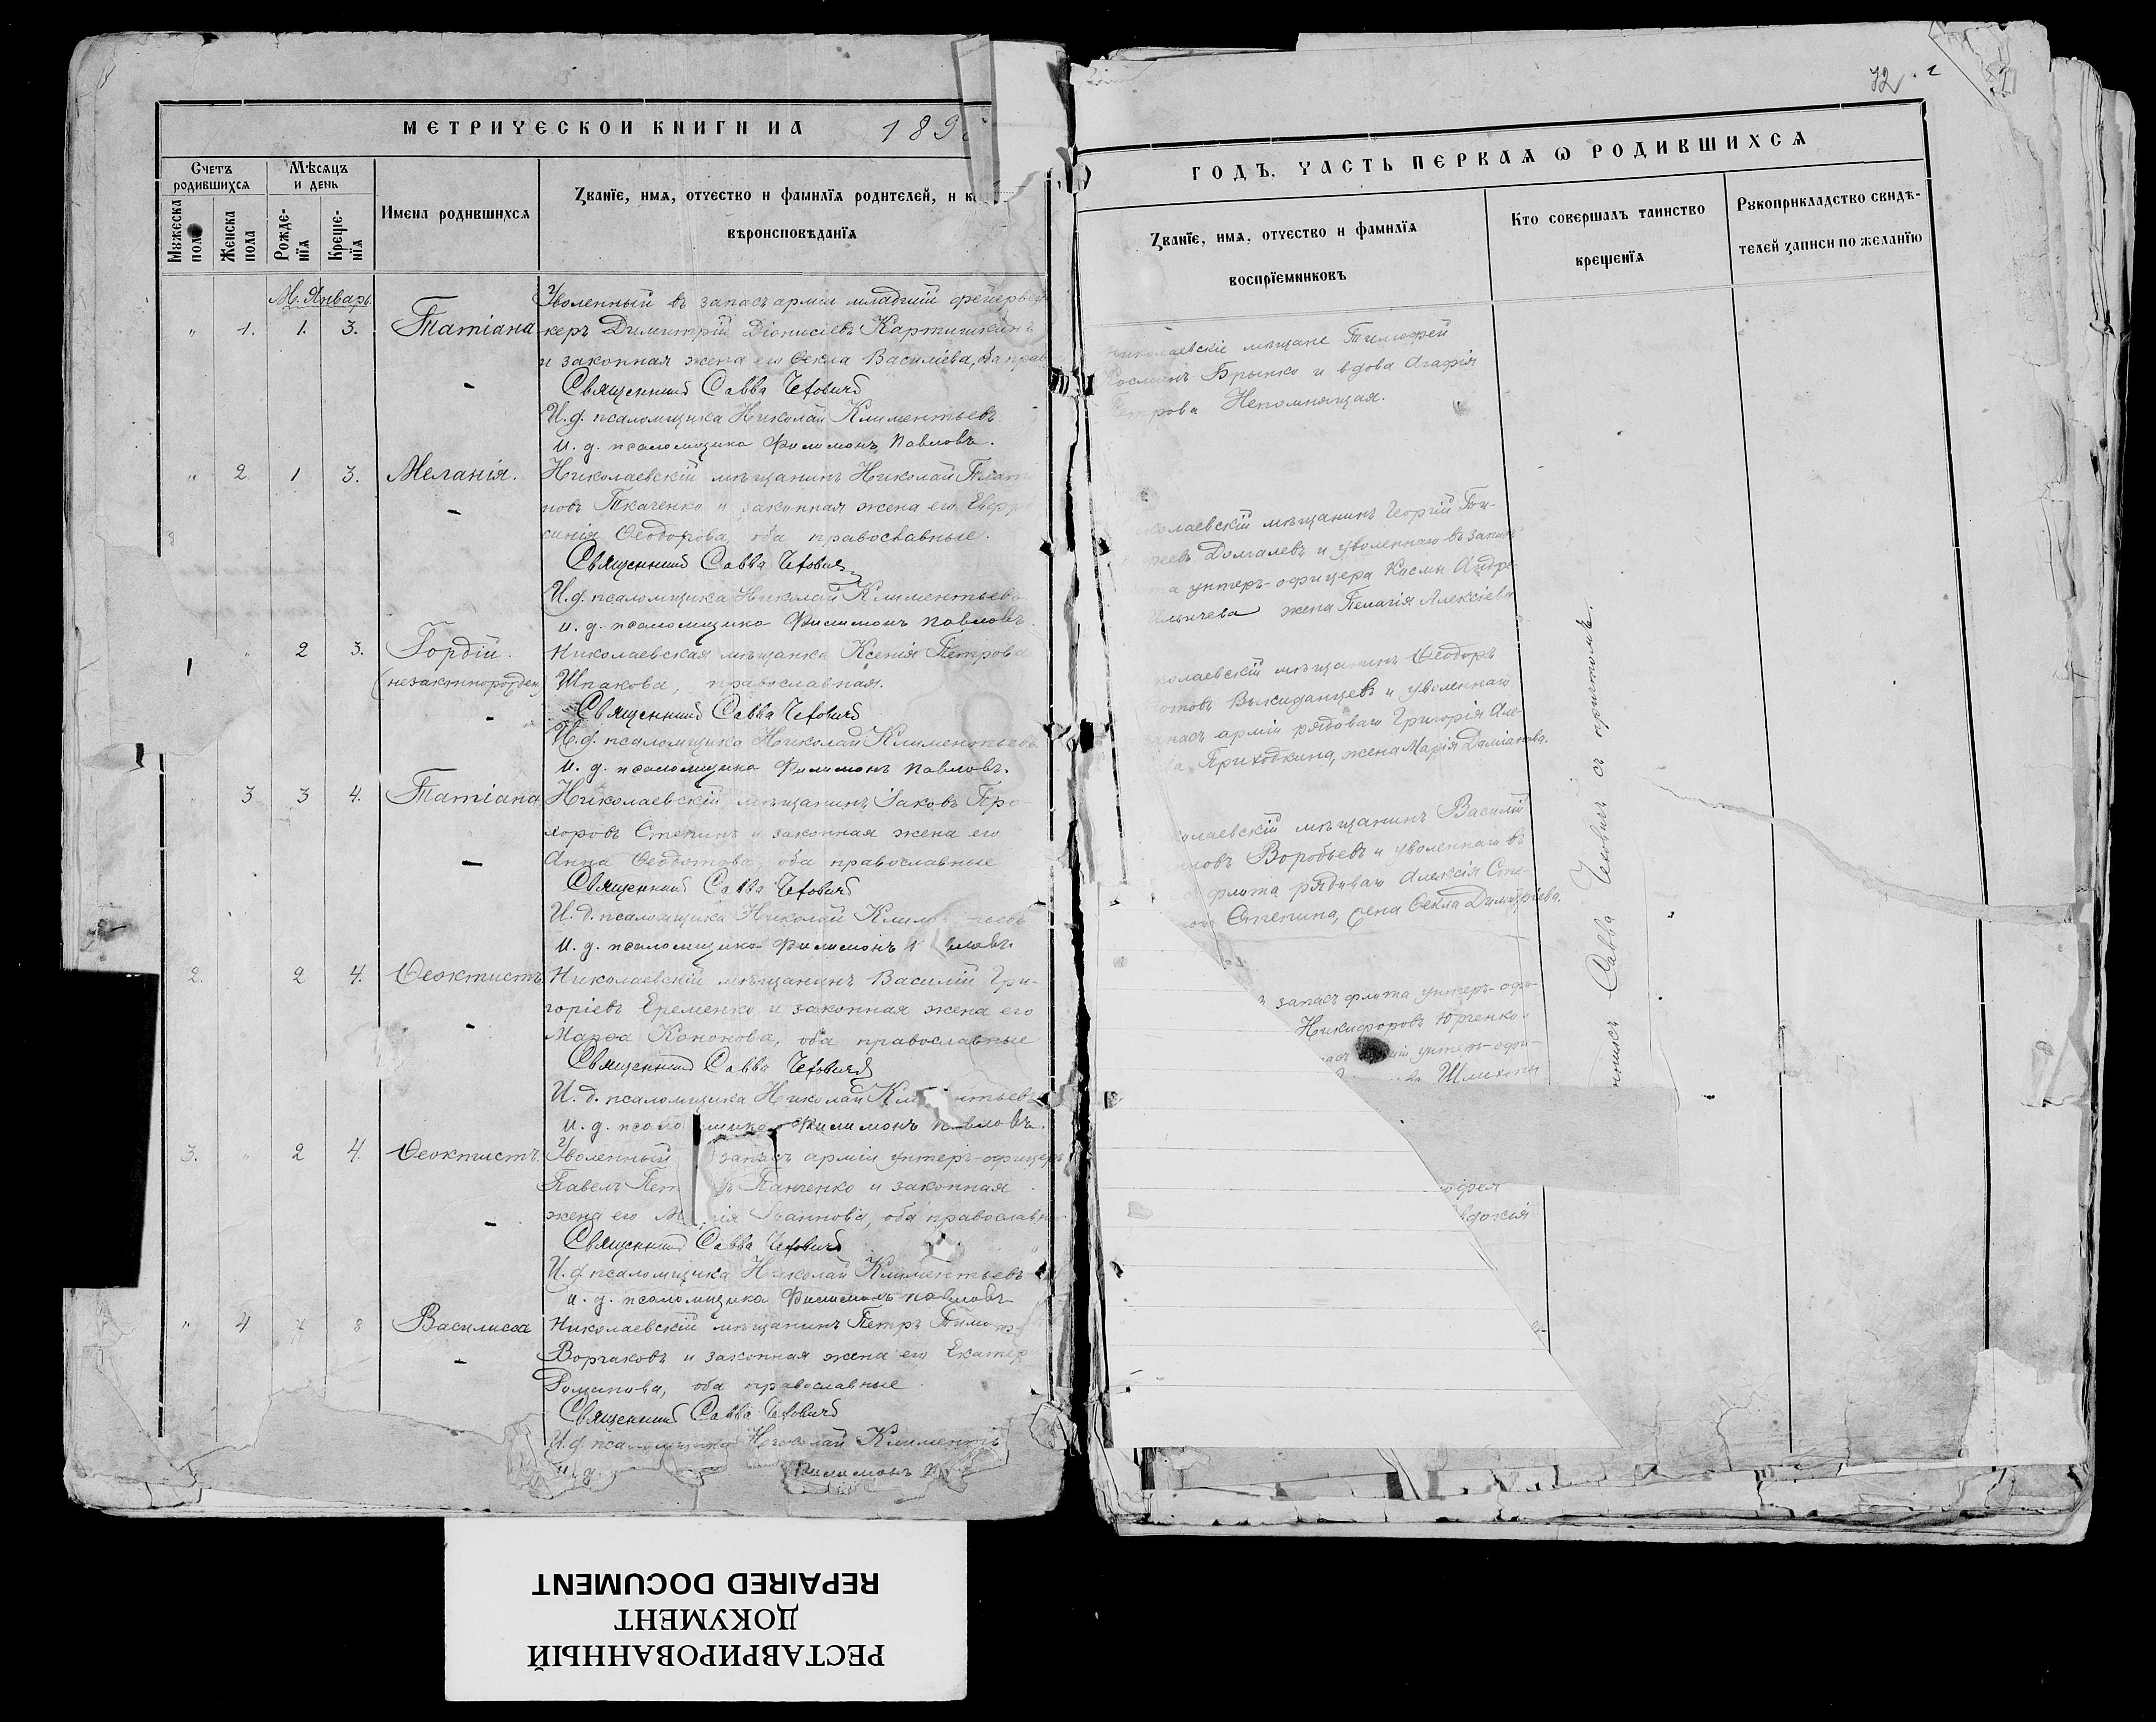 МЕТРИЧЕСКОЙ КНИГИ НА 189
Счетъ родившихся
Мѣсяцъ и день
Имена родившихся
Званїе, имя, отчество и фамилїя родителей, и к
вѣроисповѣданїя
Мужеска пола
Женска пола
Рожденїя
Крещенїя
М. Январь.
Уволенный въ запасъ армiи младшiй фейервер
" 1. 1. 3. Татiана керъ Димитрiй Дiонисiевъ Картишкинъ
и законная жена его Ѳекла Василiева, оба прав
Священникъ Савва Чехович
И.д. псаломщика Николай Климентьевъ
И. д. псаломщика Филимонъ Павловъ.
" 2 1 3. Меланiя. Николаевскiй мѣщанинъ Николай Плато
новъ Ткаченко и законная жена его Евфро
синiя Ѳеодорова, оба православные.
Священникъ Савва Чехович
И.д. псаломщика Николай Климентьевъ
И. д. псаломщика Филимонъ Павловъ.
1 " 2 3. Гордiй. Николаевская мѣщанка Ксенiя Петрова
(незаконнорожден) Шпакова, православная.
Священникъ Савва Чехович
И.д. псаломщика Николай Климентьевъ
И. д. псаломщика Филимонъ Павловъ.
" 3 3 4. Татiана Николаевскiй мѣщанинъ Iаковъ Про-
хоровъ Степинъ и законная жена его
Анна Ѳеодотова, оба православные
Священникъ Савва Чехович
И. д. псаломщика Николай Клим тьевъ
И. д. псаломщика Филимонъ П вловъ
2. 2 4. Ѳеоктистъ Николаевскiй мѣщанинъ Василiй Гри-
горiевъ Еременко и законная жена его
Марѳа Кононова, оба православные
Священникъ Савва Чехович
И. д. псаломщика Николай Кли нтьевъ
И. д. псало щика Филимонъ Павловъ.
3. " 2 4. Ѳеоктистъ. Уволенный запасъ армiи унтеръ-офицеръ
Павелъ Пет ъ Панченко и законная
жена его М рiя Iоаннова, оба православн
Священникъ Савва Чехович
И.д. псаломщика Николай Климентьевъ
И. д. псаломщика Филимонъ Павловъ
" 4 7 8 Василисса Николаевскiй мѣщанинъ Петръ Тимоѳ
Ворчаковъ и законная жена его Екатер
Романова, оба православные
Священникъ Савва Чехович
И.д. Николай Климентiе
И. д. Филимонъ П
72
ГОДЪ. ЧАСТЬ ПЕРВАЯ Ѡ РОДИВШИХСЯ
Званїе, имя, отчество и фамилїя
воспрїемниковъ
Кто совершалъ таинство
крещенїя
Рукоприкладство свидѣ-
телей записи по желанїю
Николаевскiе мѣщане Тимоѳей
Косминъ Брынко и вдова Агафiя
Петрова Непомнящая.
колаевскiй мѣщанинъ Георгiй Ти-
ѳеевъ Долгалевъ и уволеннаго въ запасъ
та унтеръ-офицера Космы Андре
Ильичева жена Пелагiя Алексiева
колаевскiй мѣщанинъ Ѳеодоръ
отовъ Выкиданцевъ и уволеннаго
запасъ армiи рядоваго Григорiя Але-
ва Приходкина, жена Марiя Дамiанова.
колаевскiй мѣщанинъ Василiй
новъ Воробьевъ и уволеннаго въ
флота рядоваго Алексiя Сте-
Степина, жена Ѳекла Димитрiева.
ъ запасъ флота унтеръ-офи-
Никифоровъ Юрченко
асъ армiи унтеръ-офи-
оѳея
вдокiя
Савва Чехович съ причтомъ.
РЕСТАВРИРОВАННЫЙ
ДОКУМЕНТ
REPAIRED DOCUMENT